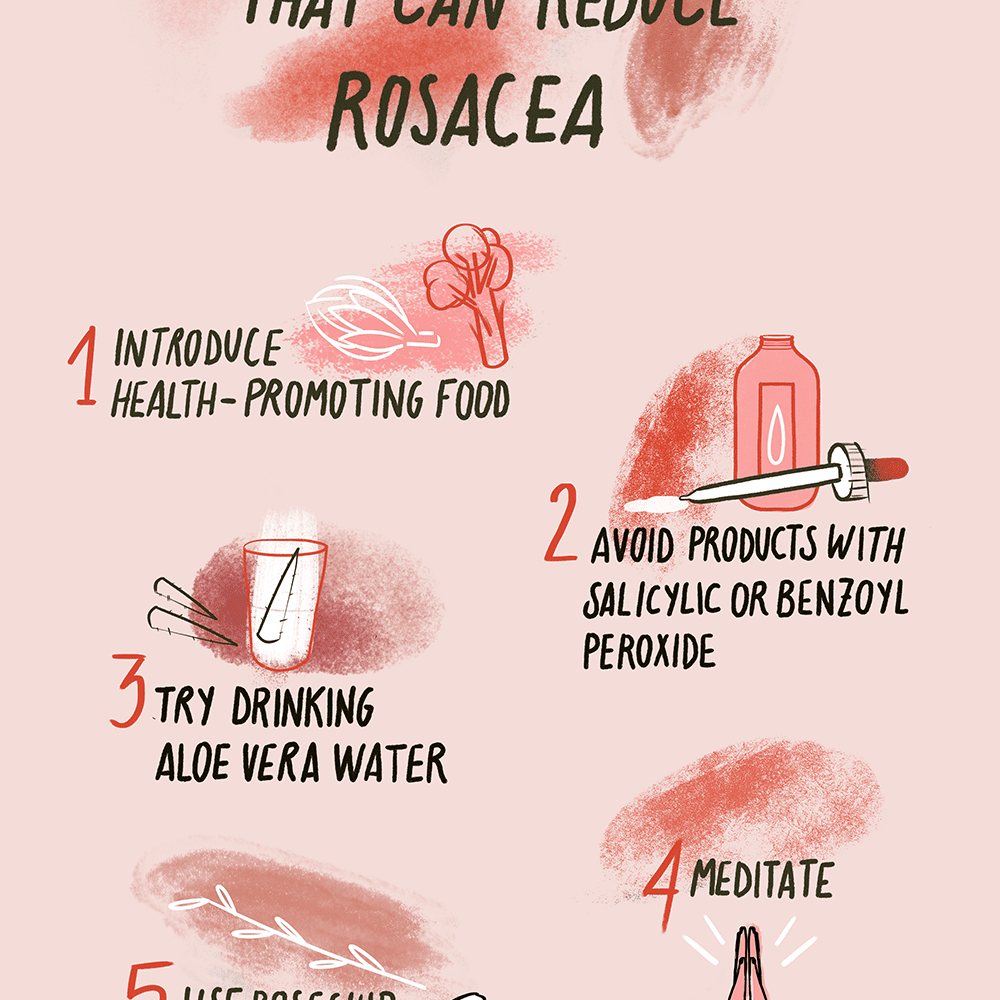 THAT CAN REDUCE
ROSACEA
1 INTRODUCE
HEALTH-PROMOTING FOOD
2 AVOID PRODUCTS WITH
SALICYLIC OR BENZOYL
PEROXIDE
3 TRY DRINKING
ALOE VERA WATER
4 MEDITATE
5 USE ROSEHIP